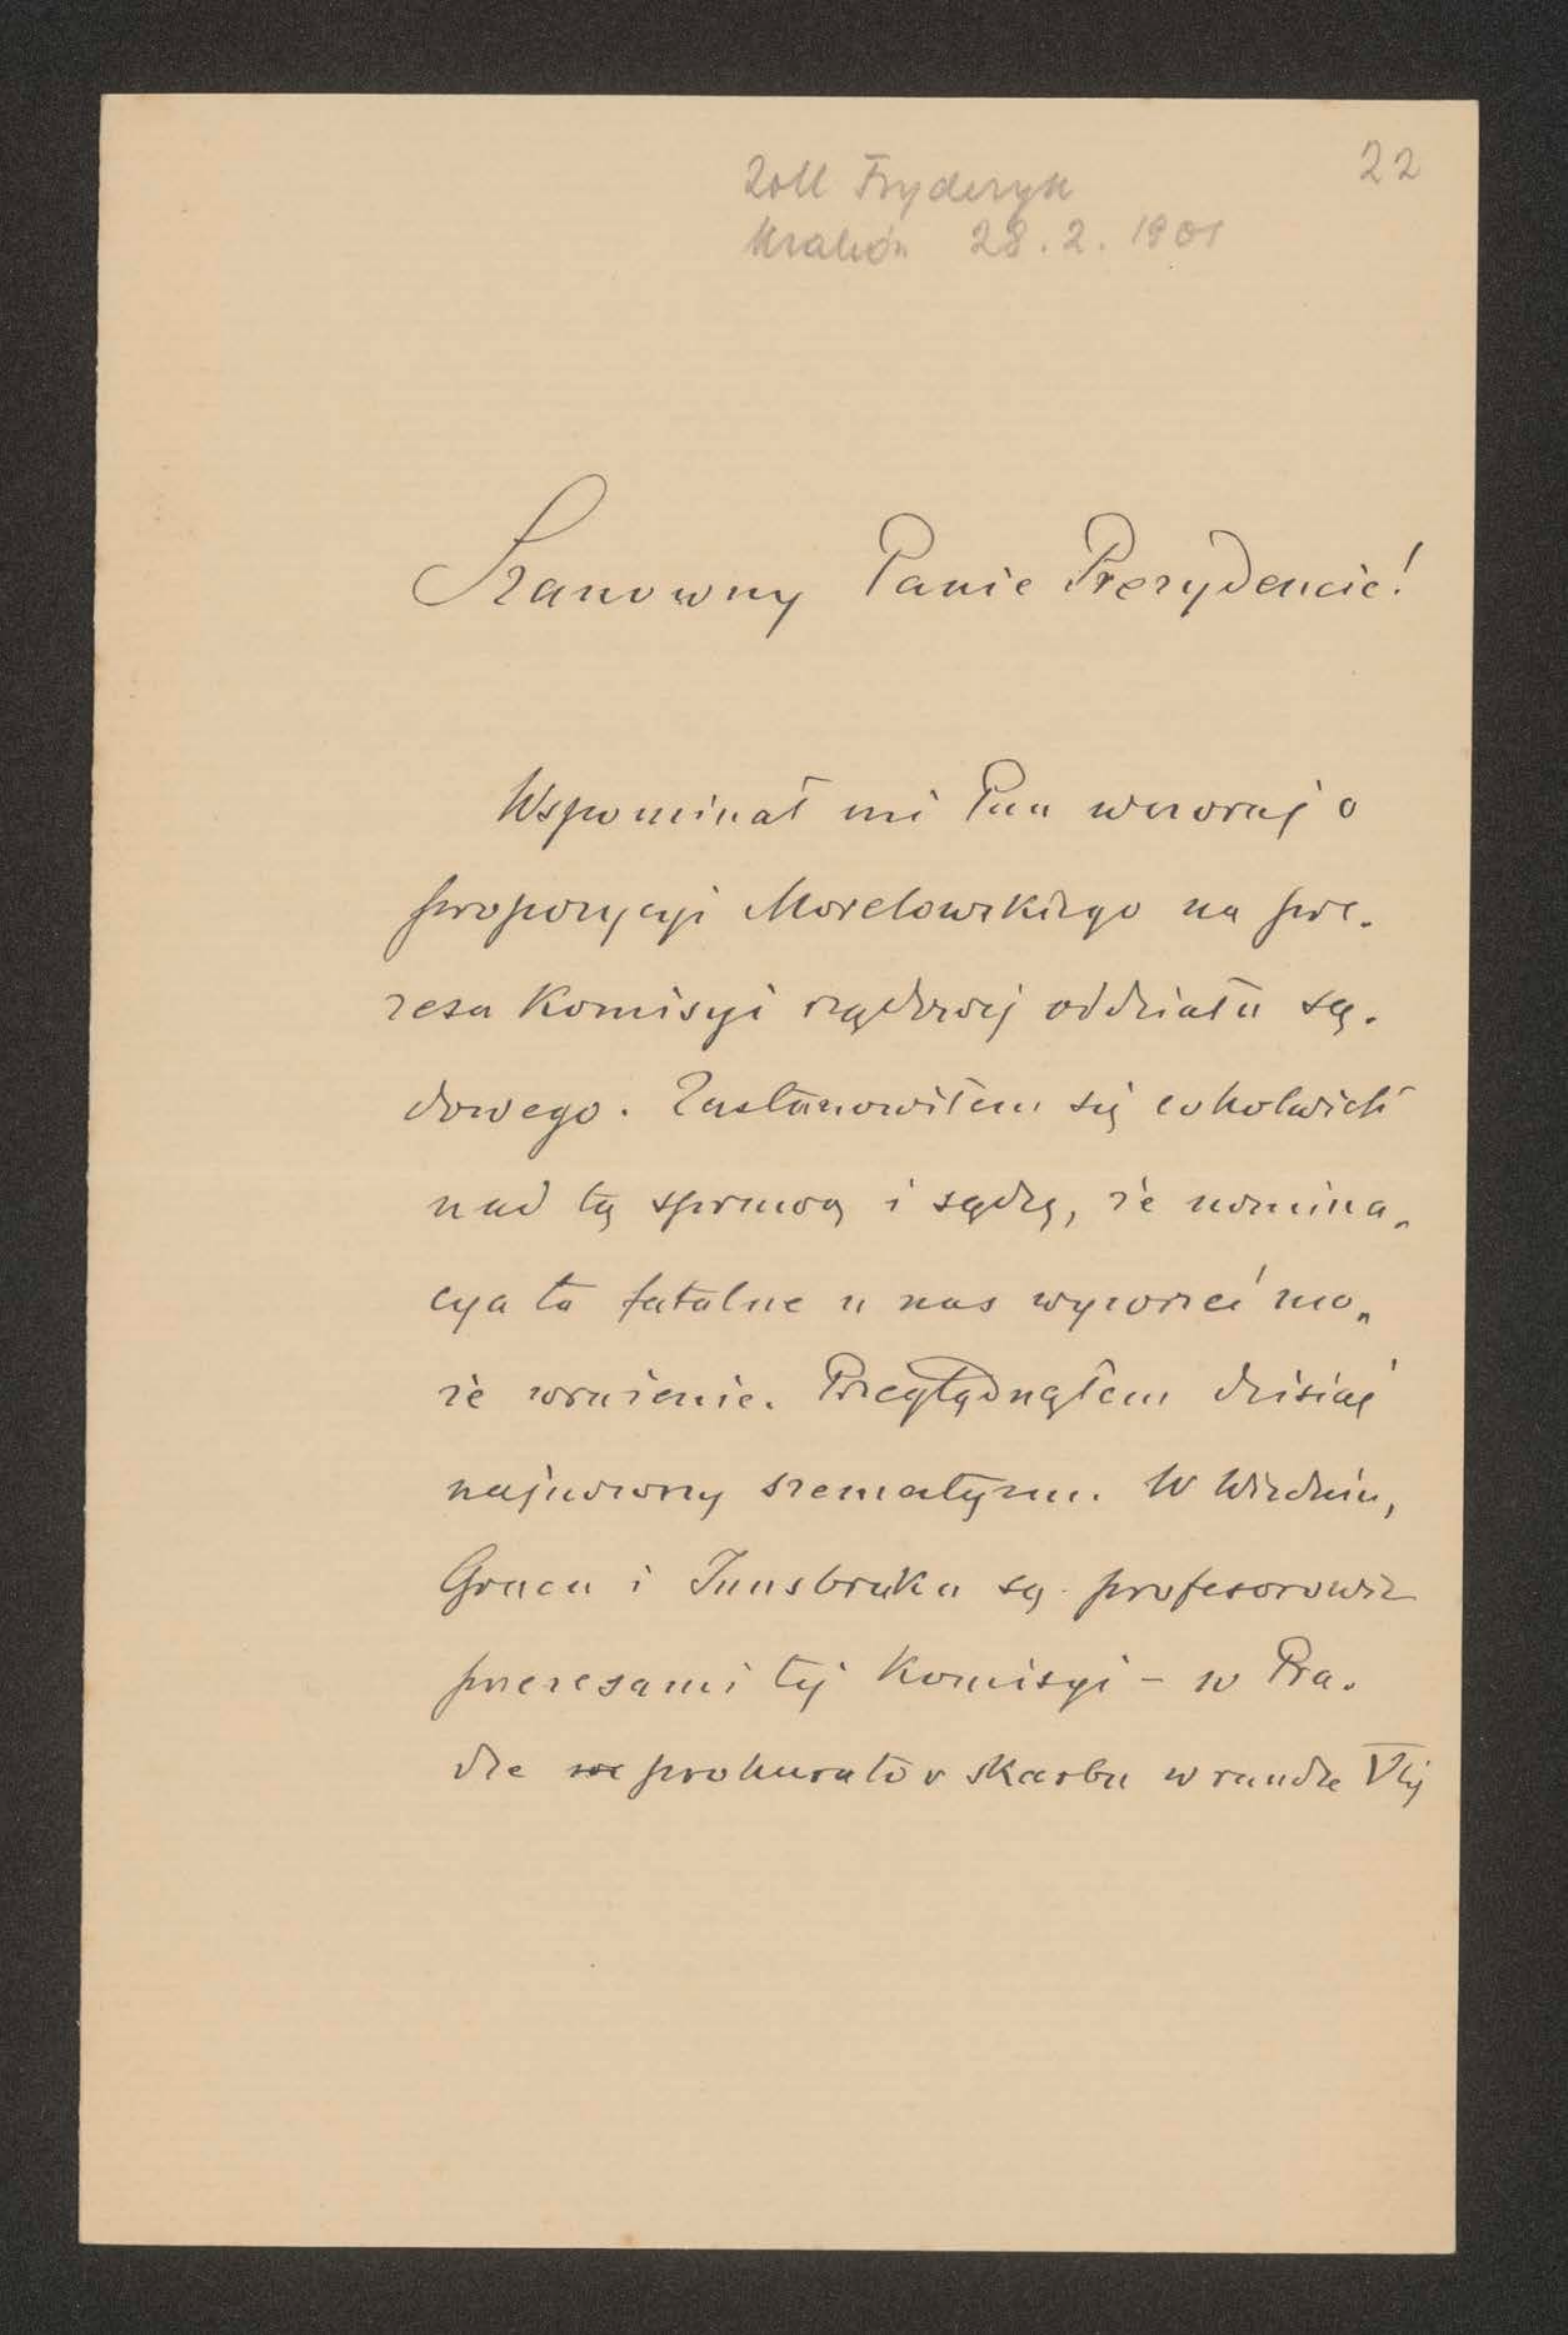 22
Zoll Fryderyk
Kraków 28.2.1901
Szanowny Panie Prezydencie!
Wspominał mi Pan wczoraj o
propozycyi Morelowskiego na pre-
zesa Komisyi rządowej oddziału są-
dowego. Zastanowiłem się cokolwiek
nad tą sprawą i sądzę, że nomina-
cya ta fatalne u nas wywrzeć mo-
że wrażenie. Przeglądnąłem dzisiaj
najnowszy szematyzm. W Wiedniu,
Gracu i Innsbruku są profesorowie
prezesami tej Komisyi - w Pra-
dze prokurator skarbu w randze V tej